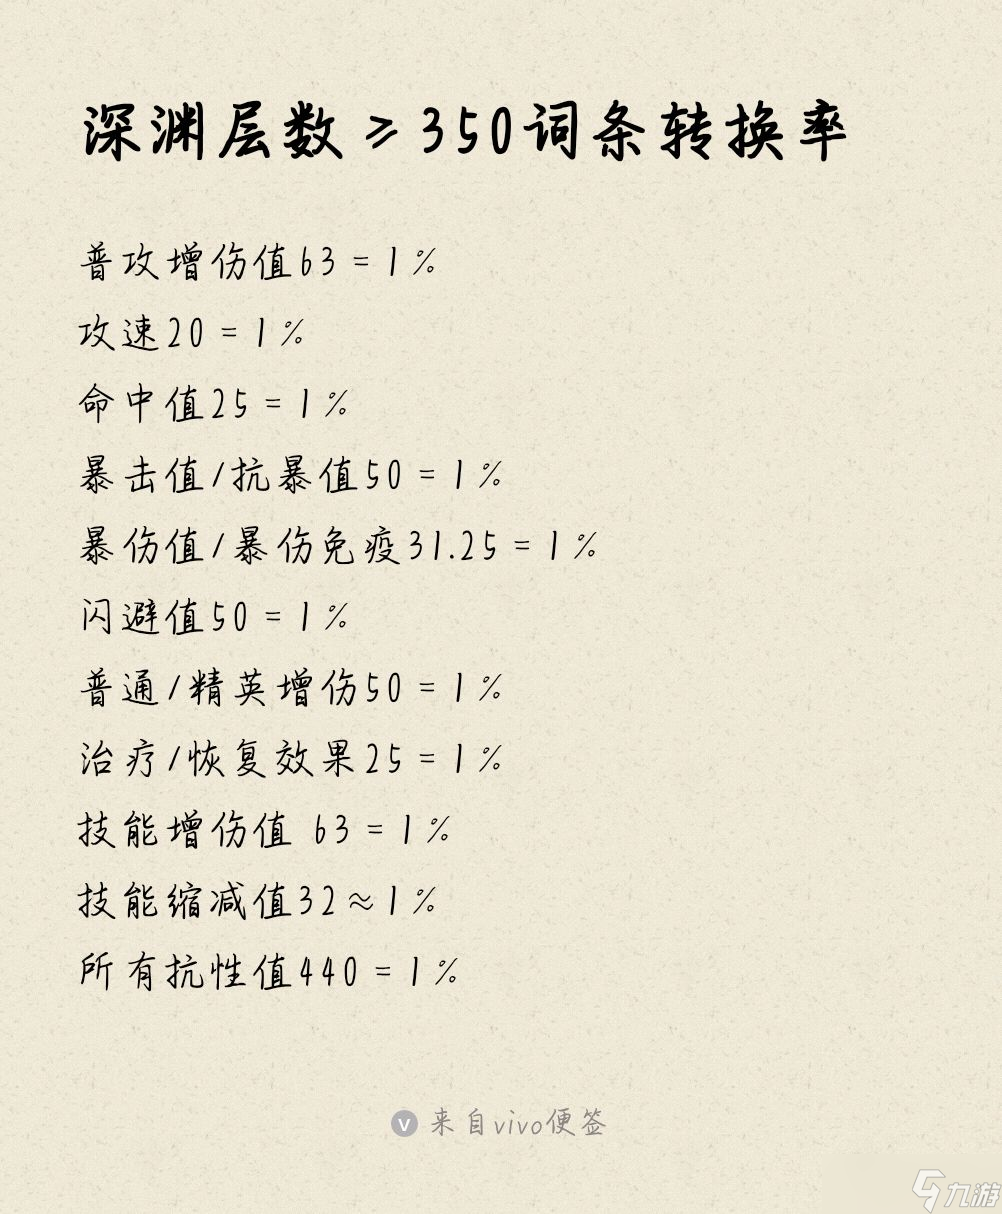 深渊层数≥350词条转换率
普攻增伤值63=1%
攻速20=1%
命中值25=1%
暴击值/抗暴值50=1%
暴伤值/暴伤免疫31.25=1%
闪避值50=1%
普通/精英增伤50=1%
治疗/恢复效果25=1%
技能增伤值 63=1%
技能缩减值32≈1%
所有抗性值440=1%
v 来自vivo便签
九游